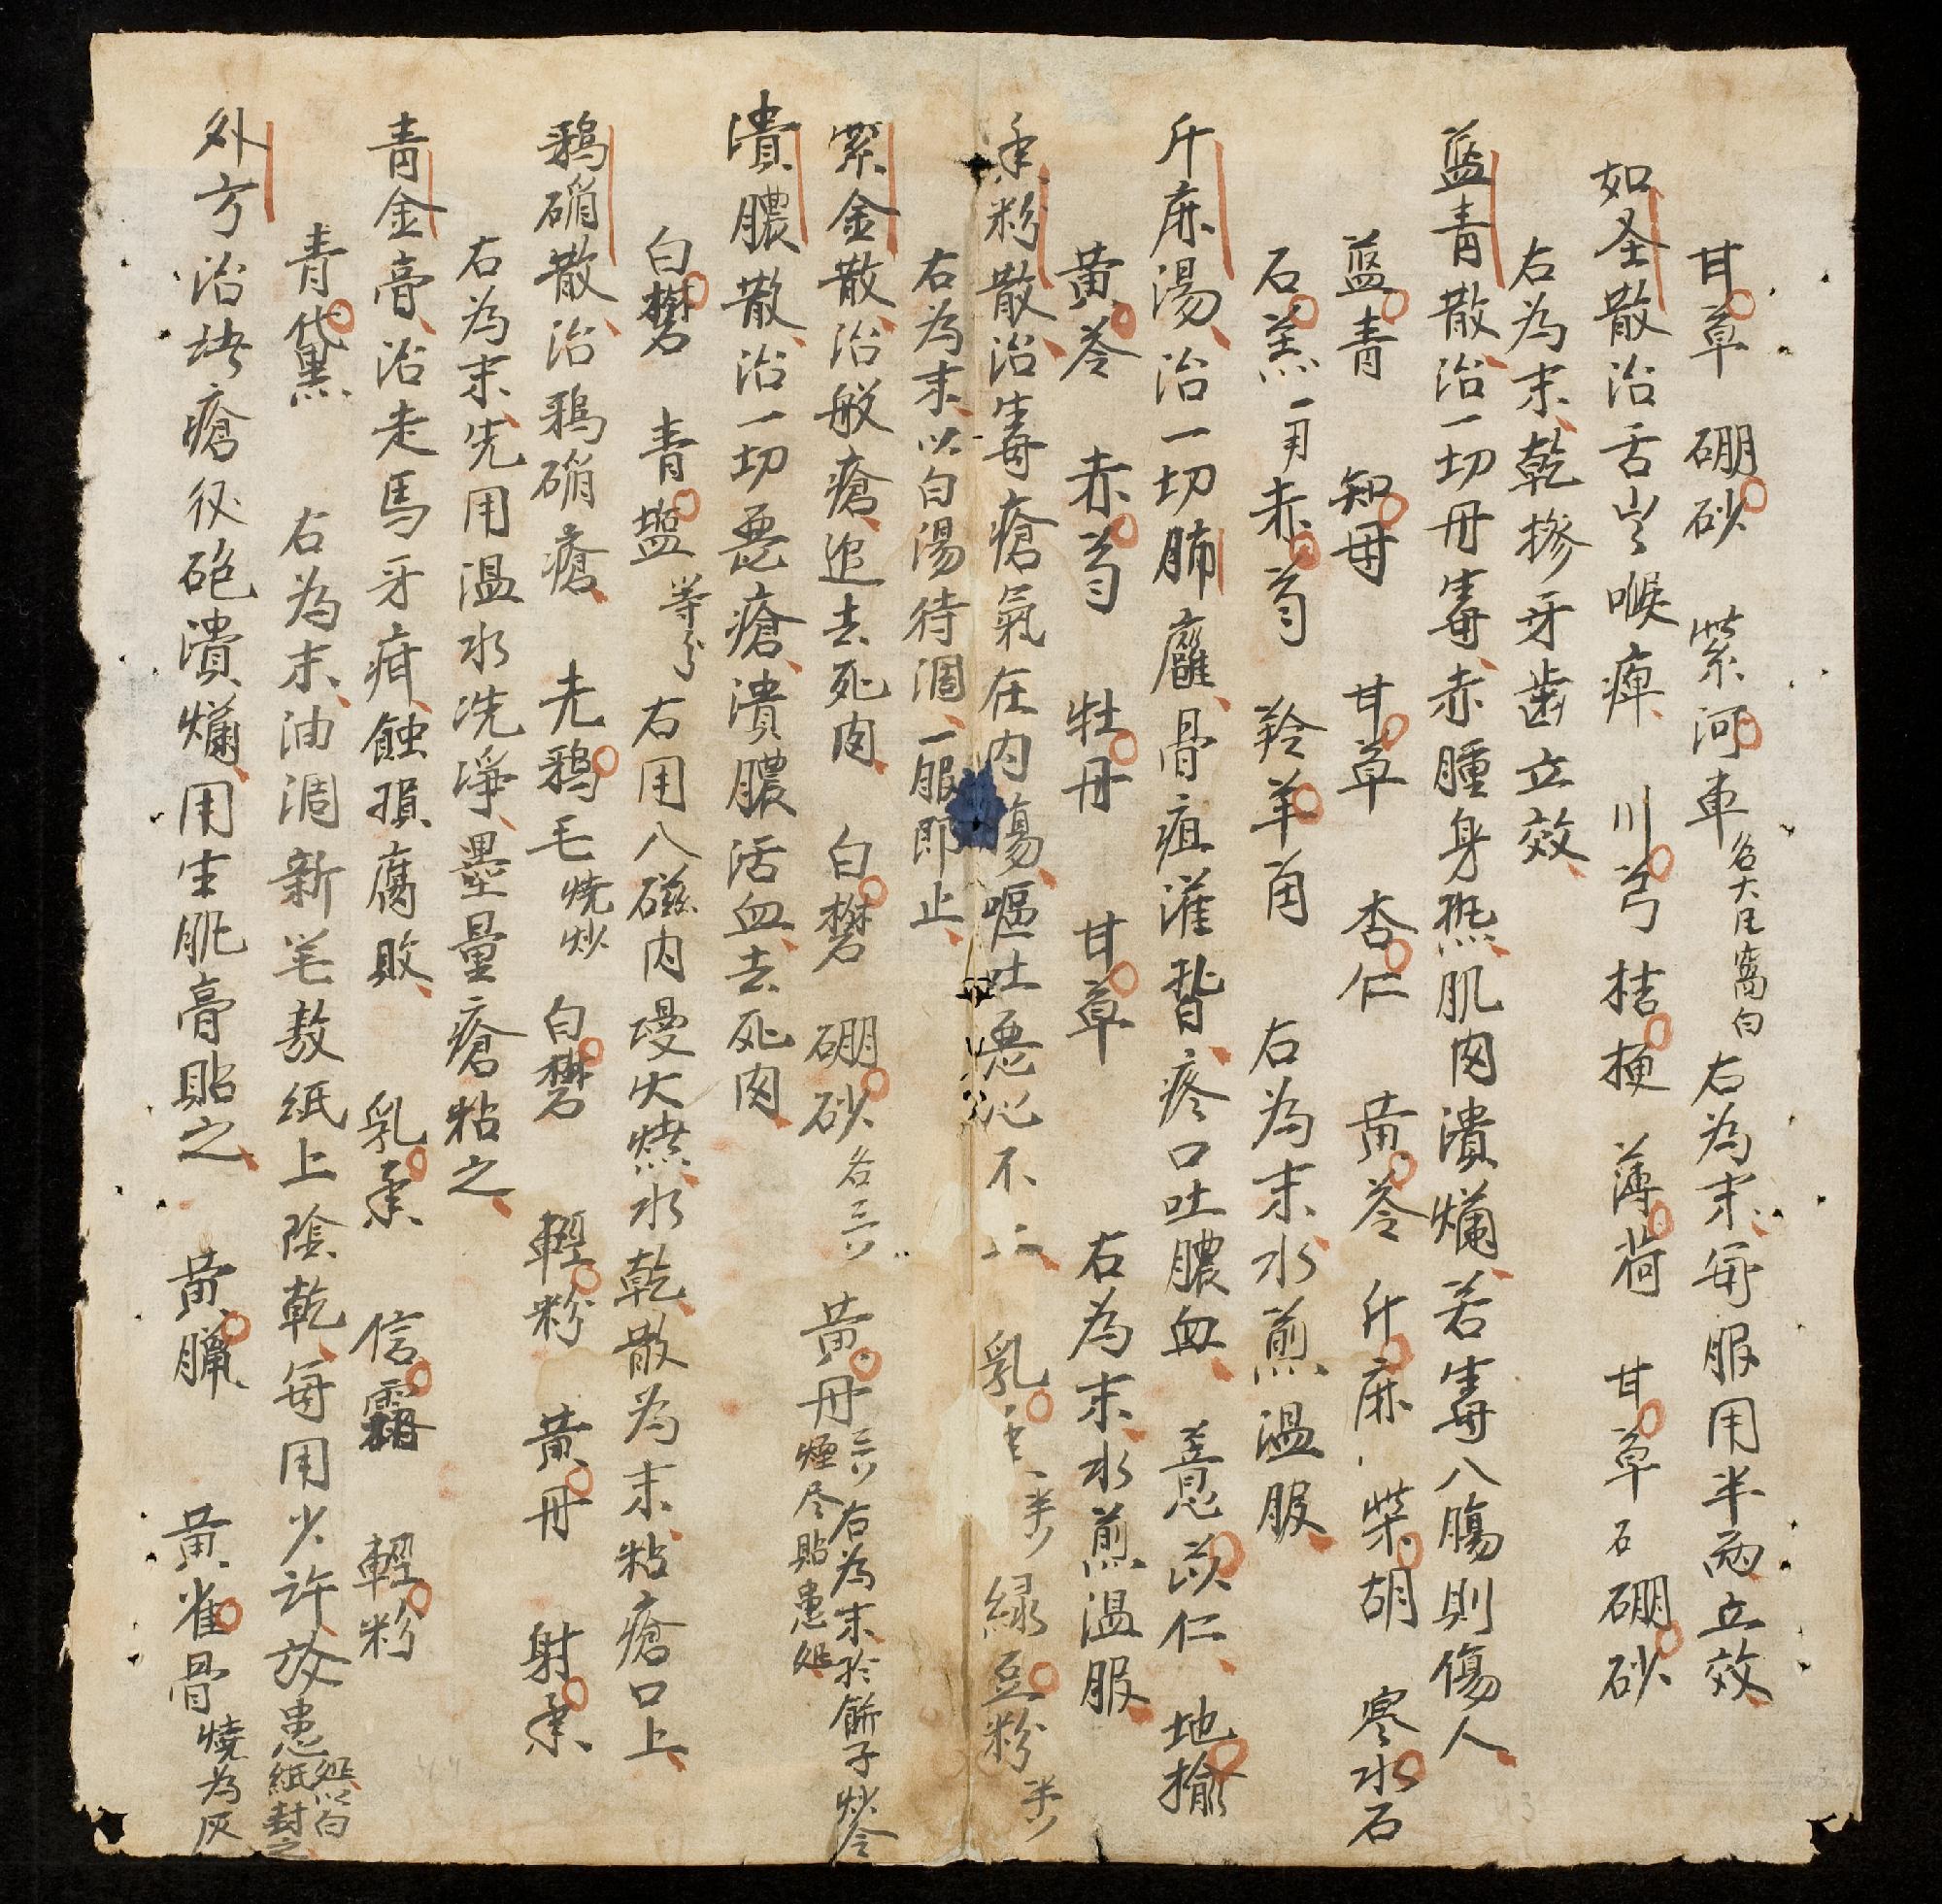 甘草 硼砂 紫河車 各大 窩白 右為末每服用半兩立效
如圣散治舌 喉痺 川芎 桔梗 薄荷 甘草 石硼砂
右為末乾摻牙齒立效
蓝青散治一切丹毒赤腫身热肌肉潰爛若毒入腸則傷人
蓝青 知母 甘草 杏仁 黄芩 升麻 柴胡 寒水石
石羔 赤芍 羚羊角 右為末水煎温服
升麻湯治一切肺癰骨疽灌背疼口吐膿血 薏苡仁 地揄
黄芩 赤芍 牡丹 甘草 右為末水煎温服
香粉散治毒瘡氣在内傷嘔吐恶心不止 乳香 绿豆粉
右為末以白湯待凋一服即止
紫金散治般瘡追去死肉 白礬 硼砂各三 黄丹三 右為末於餅子 烟尽貼患处
潰膿散治一切恶瘡潰膿活血去死肉
白礬 青塩等分 右用入磁内墁火燒水乾散為末粘瘡口上
鵶硝散治鵶硝瘡 老鵶毛燒炒 白礬 輕粉 黄丹 射香
右為末先用温水洗淨墨量瘡粘之
青金膏治走馬牙疳蝕損腐敗 乳香 信霜 輕粉
青黛 右為末油凋新笔敖紙上陰乾每用少許放患处以白紙封之
外方治 瘡後 潰爛用生肌膏貼之 黄臘 黄雀骨燒為灰